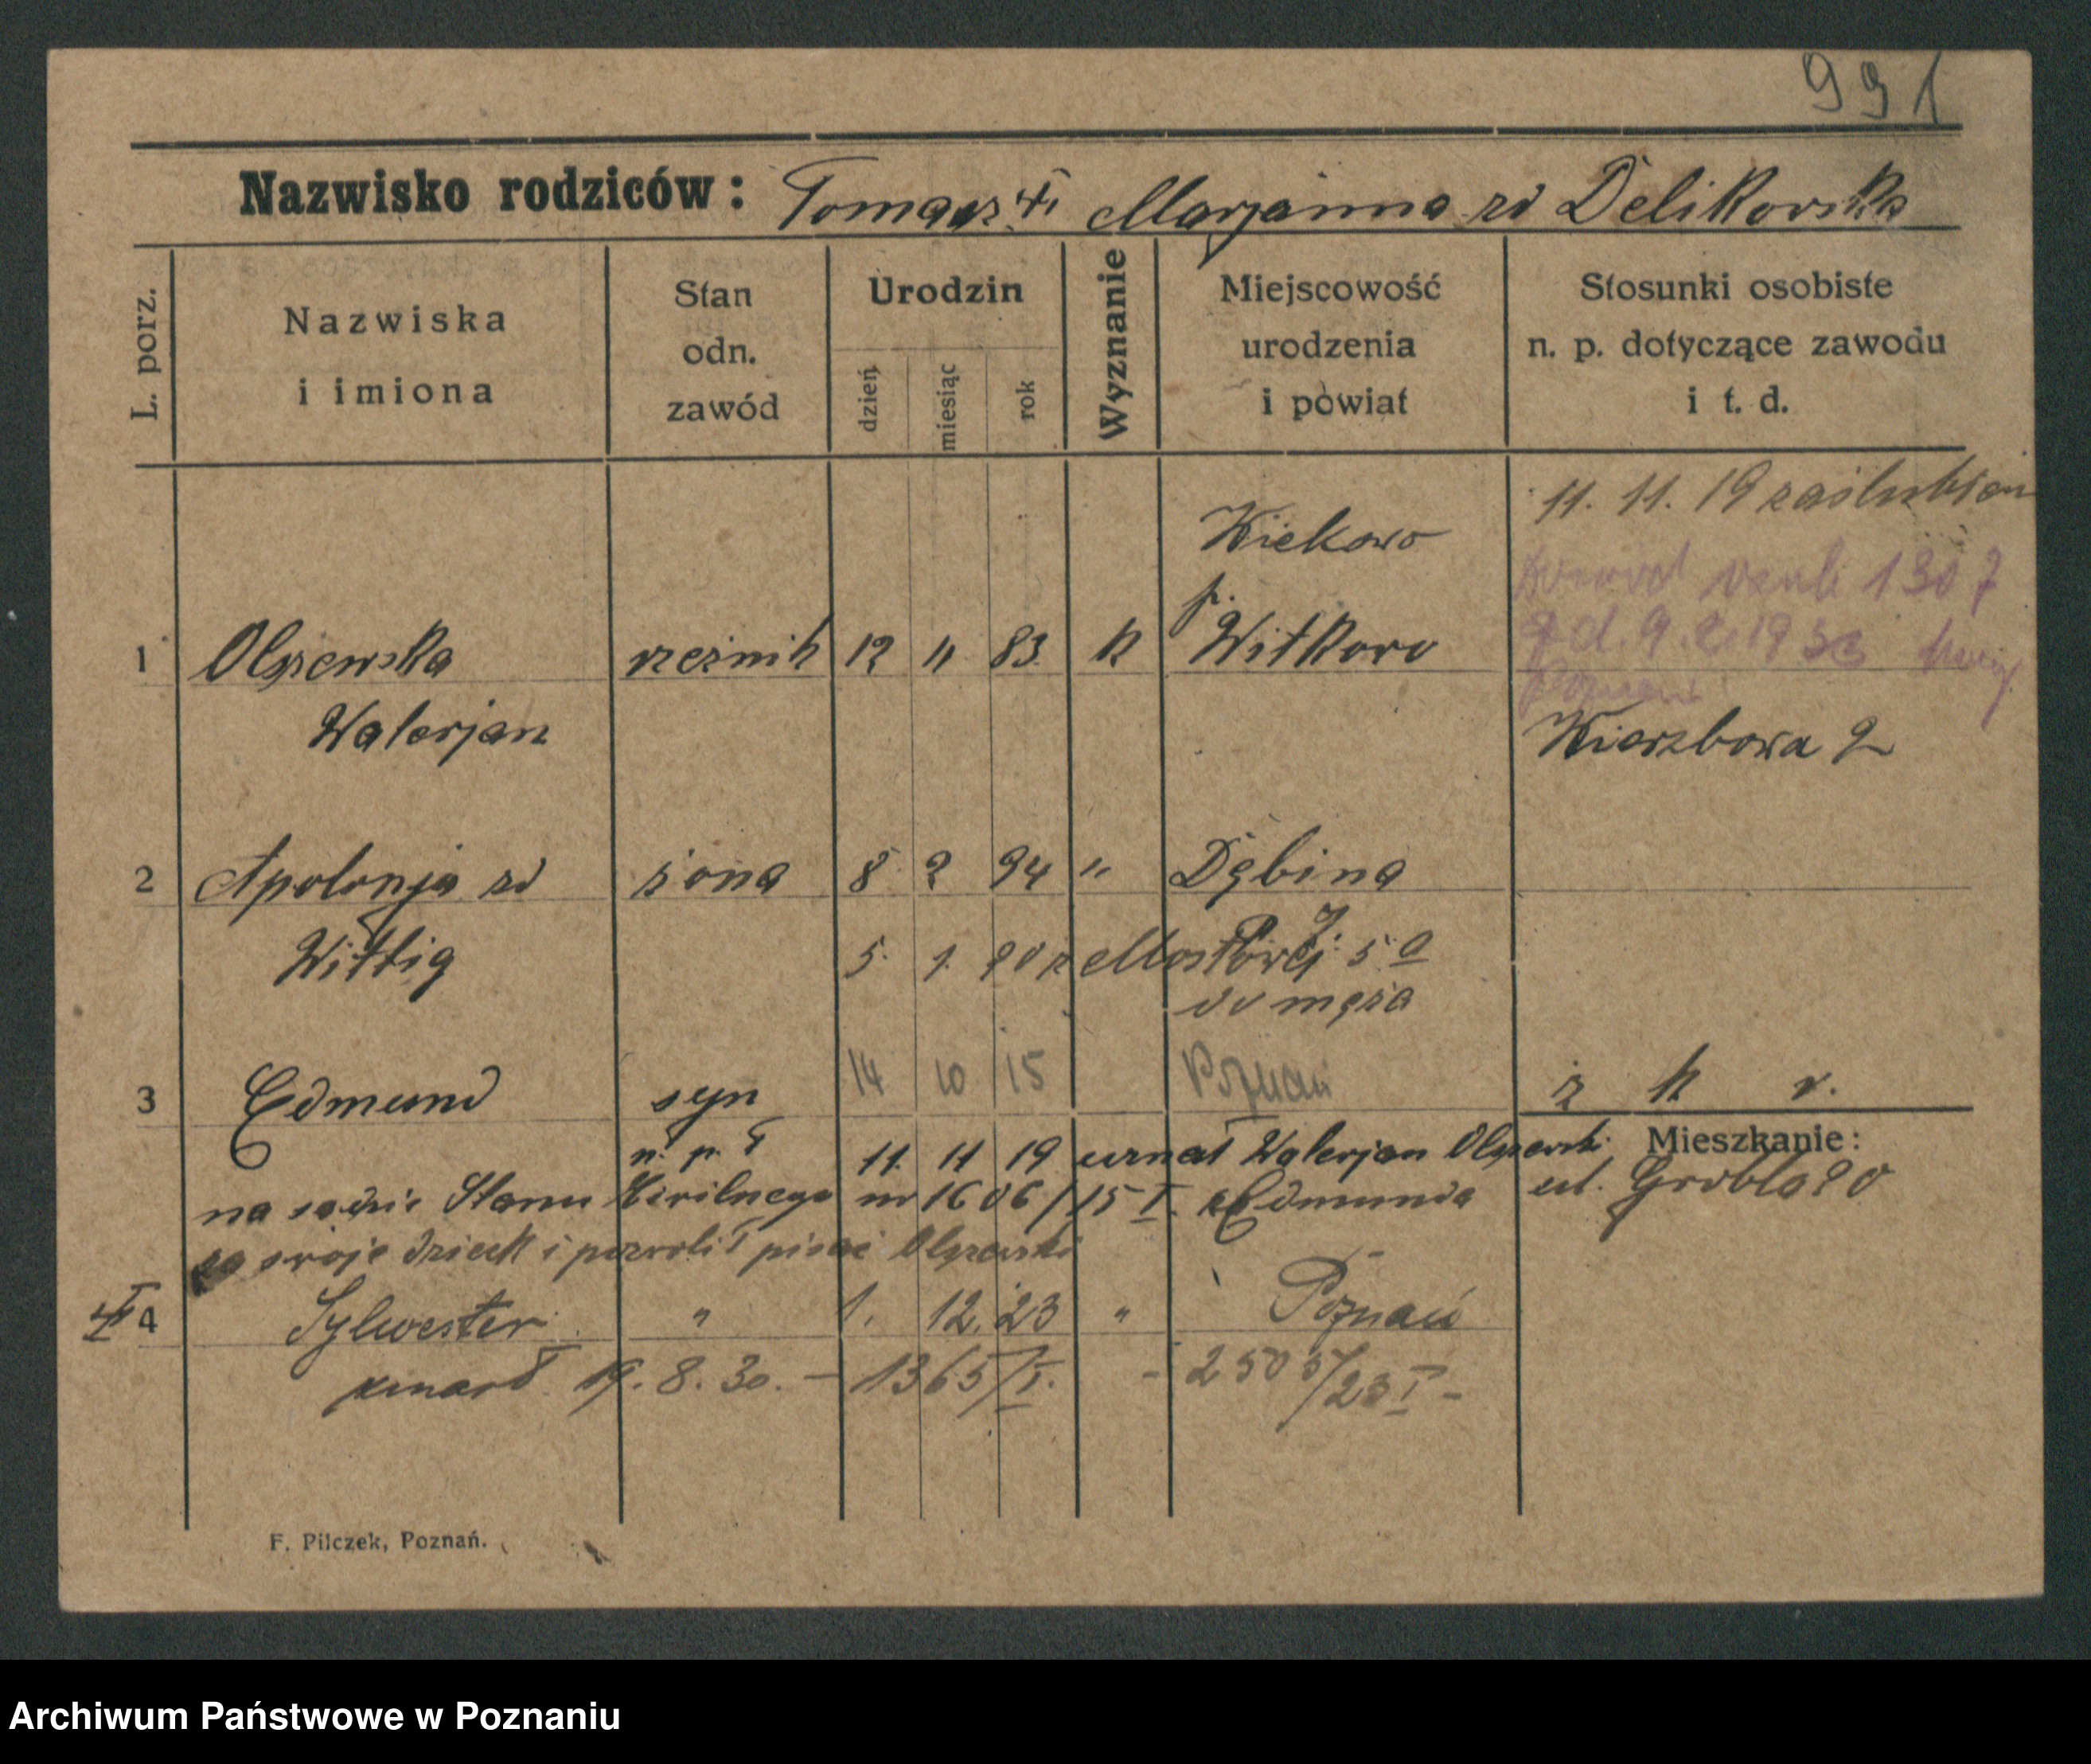 991
Nazwisko rodziców: Tomasz + i Marjanna zd Delikowska
L. porz.
Nazwiska i imiona
Stan odn. zawód
Urodzin
dzień
miesiąc
rok
Wyznanie
Miejscowość urodzenia i powiat
Stosunki osobiste n. p. dotyczące zawodu i t. d.
11. 11. 19 zaślubieni
Wiekowo
1307
d. 9. 2. 1933
1 Olszewska rzeźnik 12 11 83. K p. Witkowo
Walerjan
Wierzbowa 2
2 Apolonja zd żona 8 2 94 " Dębina
Wittig
5. 1. 20 z Mostowej 5a
do męża
3 Edmund syn 14 10 15 Poznań ż k v.
n. p. ż 11. 11 19 uznał Walerjan Olszewski Mieszkanie:
na sądzie Stanu Cywilnego nr 1606/15 I. Edmunda ul. Grobla 20
za swoje dzieck i pozwolił pisać Olszewski
I 4 Sylwester " 1. 12. 23 " Poznań
zmarł 19. 8. 30. - 1365/I. - 2505/23 I -
F. Pilczek, Poznań.
Archiwum Państwowe w Poznaniu